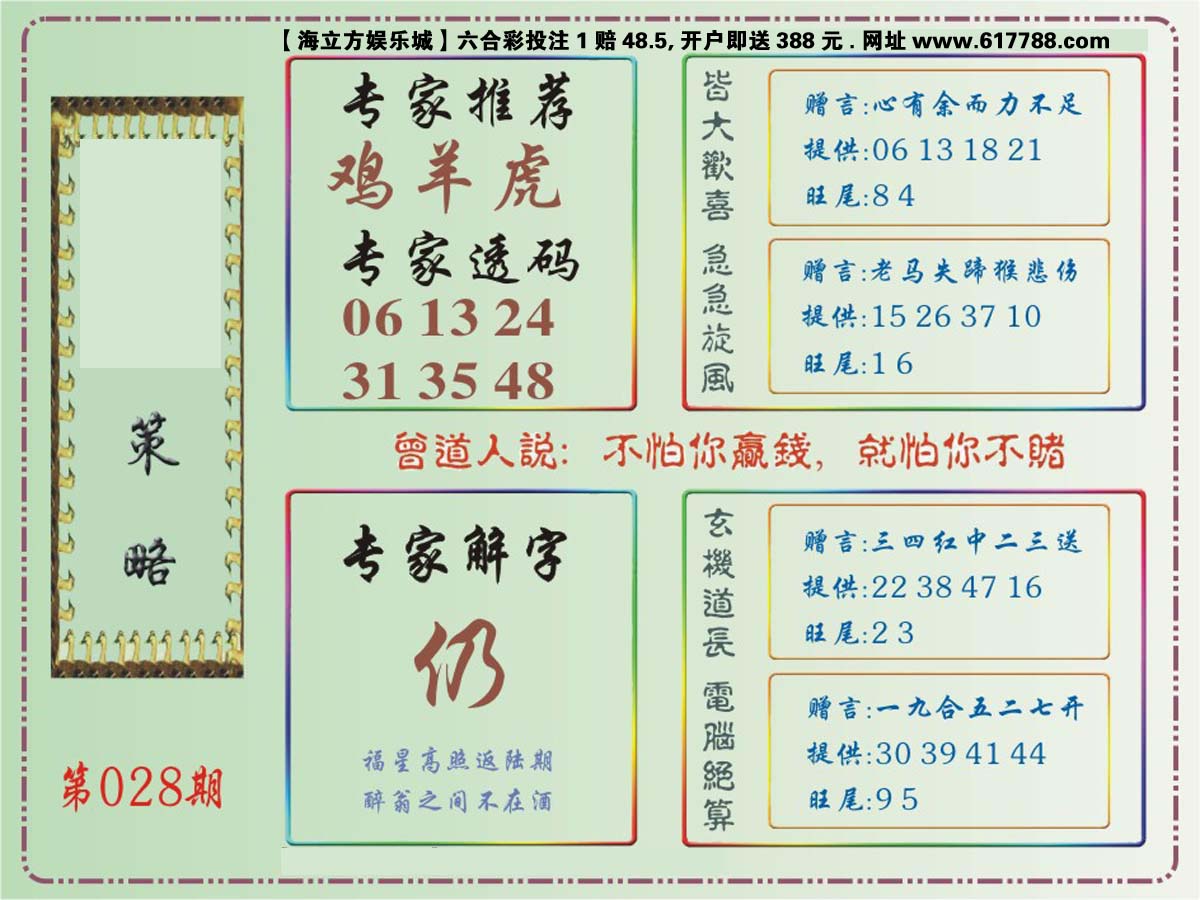 【海立方娱乐城】六合彩投注 1 赔 48.5, 开户即送 388 元 . 网址 www.617788.com
策
略
第028期
专家推荐
鸡羊虎
专家透码
06 13 24
31 35 48
皆大歡喜
赠言:心有余而力不足
提供:06 13 18 21
旺尾:8 4
急急旋風
赠言:老马失蹄猴悲伤
提供:15 26 37 10
旺尾:1 6
曾道人説: 不怕你贏錢, 就怕你不賭
专家解字
仍
福星高照返陆期
醉翁之间不在酒
玄機道長
赠言:三四红中二三送
提供:22 38 47 16
旺尾:2 3
電腦絕算
赠言:一九合五二七开
提供:30 39 41 44
旺尾:9 5